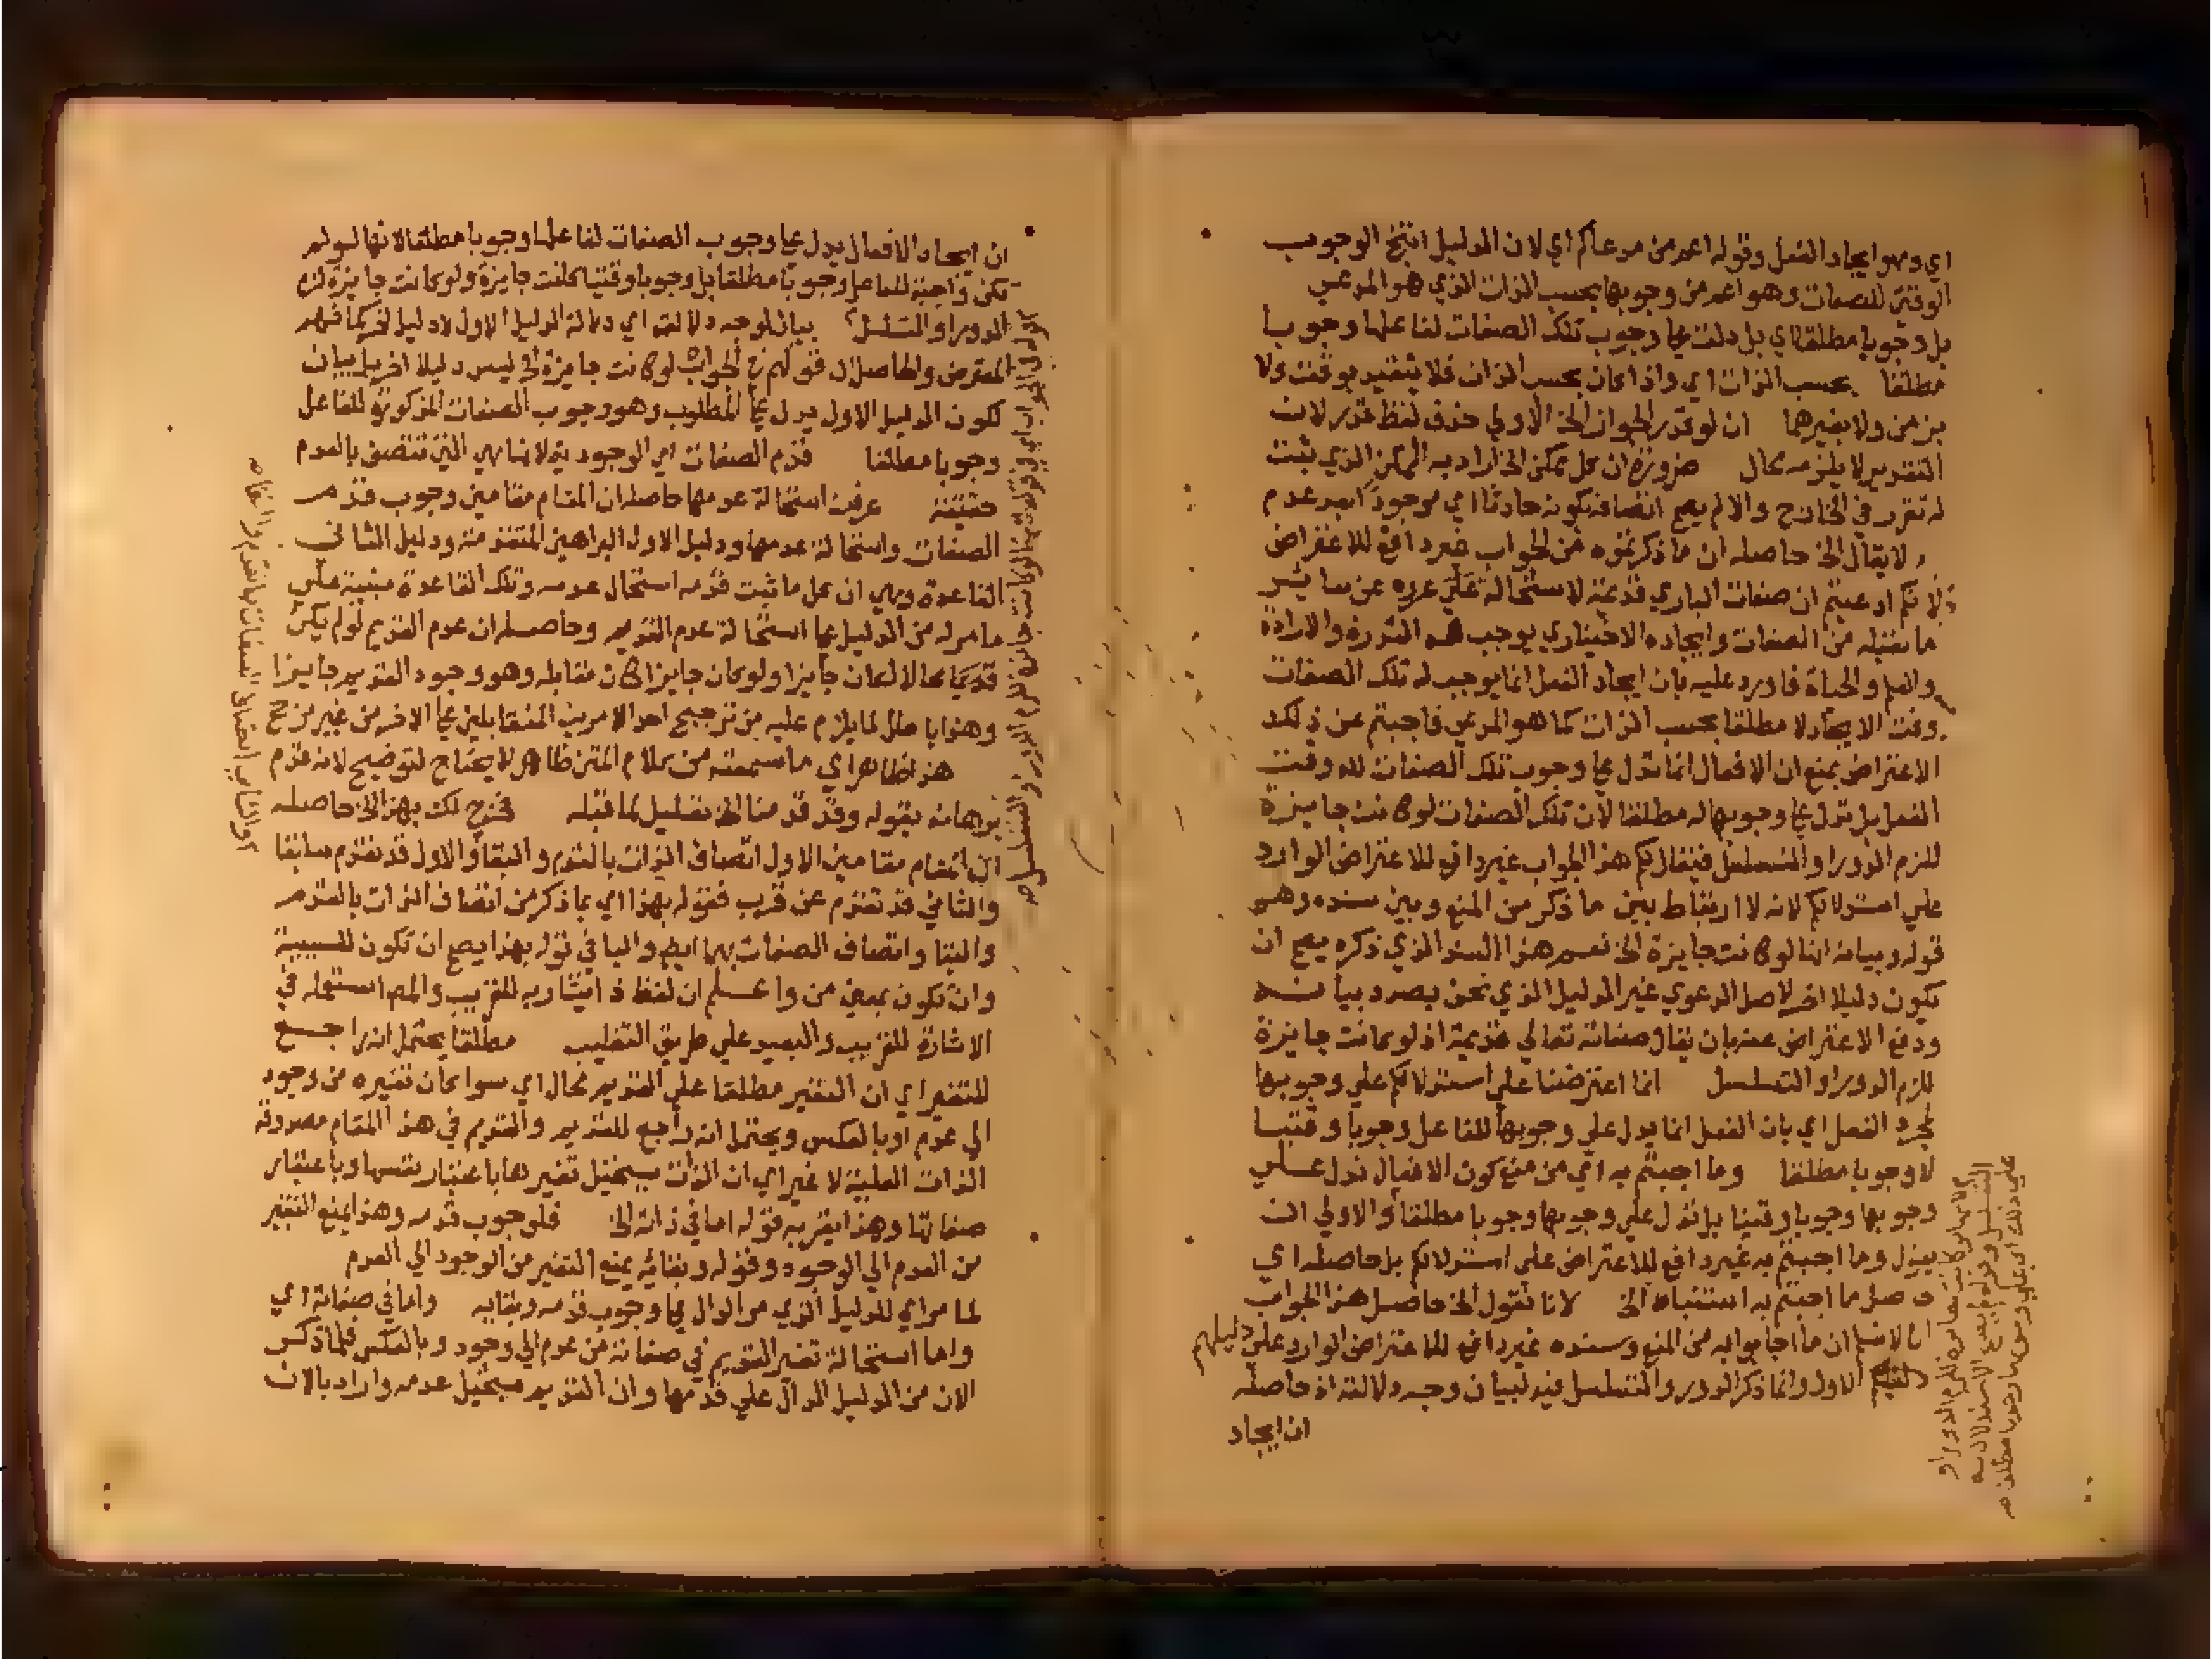 اي وهو ايجاد الفعل وقوله اعم من مدعاكم اي لان الدليل انتج الوجوب
الوقتي للصفات وهو اعم من وجوبها بحسب الذات الذي هو المدعي
بل وجوبا مطلقا اي بل دلت علي وجوب تلك الصفات لفاعلها وجوبا
مطلقا بحسب الذات اي واذا كان بحسب الذات فلا يتقيد بوقت ولا
بزمن ولا بغيرها ان لو قدر الجواز الخ الاولي حذف لفظ قدر لان
التقدير لا يلزمه محال ضرورة ان كل ممكن الخ اراد به الممكن الذي ثبت
له تقرر في الخارج والا لم يصح اتصافه بكونه حادثا اي موجودا بعد عدم
لا يقال الخ حاصله ان ما ذكرتموه من الجواب غير دافع للاعتراض
لانكم ادعيتم ان صفات الباري قديمة لاستحالة عروه عن ساير
ما تقبله من الصفات وايجاده الاختياري يوجب له القدرة والارادة
والعلم والحياة فاورد عليه بان ايجاد الفعل انما يوجب له تلك الصفات
وقت الايجاد لا مطلقا بحسب الذات كما هو المدعي فاجبتم عن ذلك
الاعتراض بمنع ان الافعال انما تدل علي وجوب تلك الصفات له وقت
الفعل بل تدل علي وجوبها له مطلقا لان تلك الصفات لو كانت جايزة
للزم الدور او التسلسل فيقال لكم هذا الجواب غير دافع للاعتراض الوارد
علي استدلالكم لانه لا ارتباط بين ما ذكر من المنع وبين سنده وهو
قوله وبيانه انها لو كانت جايزة الخ نعم هذا السند الذي ذكره يصح ان
يكون دليلا اخر لاصل الدعوي غير الدليل الذي نحن بصدد بيانه
ودفع الاعتراض عنه بان يقال صفاته تعالي قديمة اذ لو كانت جايزة
للزم الدور او التسلسل انما اعترضنا علي استدلالكم علي وجوبها
بمجرد الفعل اي بان الفعل انما يدل علي وجوبها للفاعل وجوبا وقتيا
لا وجوبا مطلقا وما اجبتم به اي من منع كون الافعال تدل علي
وجوبها وجوبا وقتيا بل تدل علي وجوبها وجوبا مطلقا والاولي ان
يقول وما اجبتم به غير دافع للاعتراض علي استدلالكم بل حاصله اي
حاصل ما اجبتم به استنباط الخ لانا نقول الخ حاصل هذا الجواب
انا لا نسلم ان ما اجابوا به من المنع وسنده غير دافع للاعتراض الوارد علي دليلهم
الاول وانما ذكر الدور والتسلسل فيه لبيان وجه دلالته اذ حاصله
ان ايجاد
ان ايجاد الافعال يدل علي وجوب الصفات لفاعلها وجوبا مطلقا لانها لو لم
تكن واجبة للفاعل وجوبا مطلقا بل وجوبا وقتيا لكانت جايزة ولو كانت جايزة لزم
الدور او التسلسل بيان لوجه دلالته اي دلالة الدليل الاول لا دليل اخر كما فهم
المعترض والحاصل ان قولهم في الجواب لو كانت جايزة الخ ليس دليلا اخر بل بيان
لكون الدليل الاول يدل علي المطلوب وهو وجوب الصفات المذكورة للفاعل
وجوبا مطلقا قدم الصفات اي الوجودية لانها هي التي تتصف بالقدم
حقيقة عرفت استحالة عدمها حاصله ان المقام مقامين وجوب قدم
الصفات واستحالة عدمها ودليل الاول البراهين المتقدمة ودليل الثاني
القاعدة وهي ان كل ما ثبت قدمه استحال عدمه وتلك القاعدة مبنية علي
ما مر له من الدليل علي استحالة عدم القديم وحاصله ان عدم القديم لو لم يكن
محالا لكان جايزا ولو كان جايزا كان مقابله وهو وجود القديم جايزا
وهذا باطل لما يلزم عليه من ترجيح احد الامرين المتقابلين علي الاخر من غير مرجح
هذا ظاهر اي ما سمعته من كلام المتن ظاهر لا يحتاج لتوضيح لانه قدم
برهانه بقوله وقد قدمنا الخ تعليل لما قبله فخرج لك بهذا الخ حاصله
ان المقام مقامين الاول اتصاف الذات بالقدم والبقا والاول قد تقدم سابقا
والثاني قد تقدم عن قرب فقوله بهذا اي بما ذكر من اتصاف الذات بالقدم
والبقا واتصاف الصفات بهما ايض والبا في قوله بهذا يصح ان تكون للسببية
وان تكون بمعني من واعلم ان لفظ ذا يشار به للقريب والمص استعمله في
الاشارة للقريب والبعيد علي طريق التغليب مطلقا يحتمل انه راجع
للتغير اي ان التغير مطلقا علي القديم محال اي سوا كان تغيره من وجود
الي عدم او بالعكس ويحتمل انه راجع للقديم والقديم في هذا المقام مصدوقه
الذات العلية لا غير اي ان الذات يستحيل تغيرها باعتبار نفسها وباعتبار
صفاتها وهذا يقربه قوله اما في ذاته الخ فلوجوب قدمه وهذا يمنع التغير
من العدم الي الوجود وقوله وبقائه يمنع التغير من الوجود الي العدم
لما مر اي للدليل الذي مر الدال علي وجوب قدمه وبقايه واما في صفاته اي
واما استحالة تغير القديم في صفاته من عدم الي وجود وبالعكس فلما ذكر
الان من الدليل الدال علي قدمها وان القديم يستحيل عدمه واراد بالان